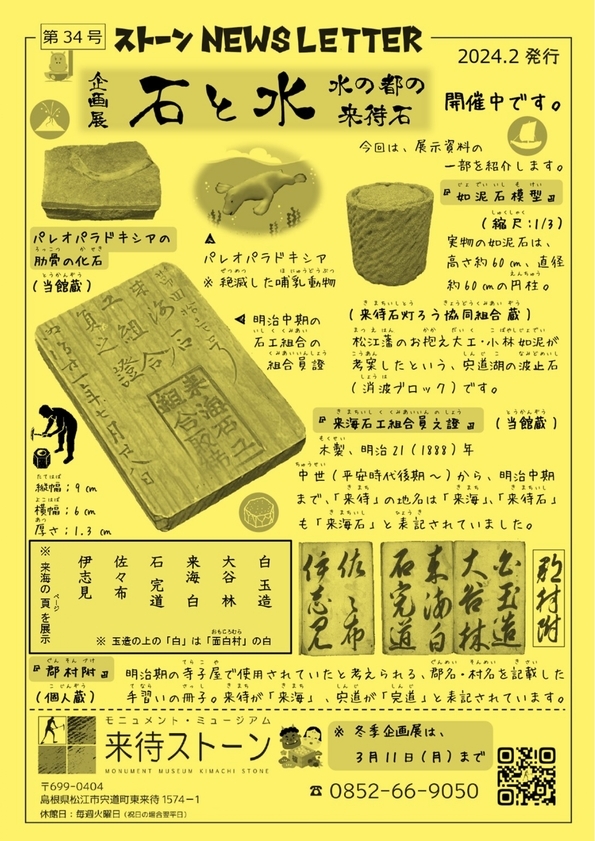 第34号
ストーン NEWS LETTER
2024.2 発行
企画展
石と水
水の都の
来待石
開催中です。
今回は、展示資料の
一部を紹介します。
パレオパラドキシアの
肋骨の化石
(当館蔵)
パレオパラドキシア
※ 絶滅した哺乳動物
『如泥石模型』
(縮尺:1/3)
実物の如泥石は、
高さ約60cm、直径
約60cmの円柱。
(来待石灯ろう協同組合蔵)
松江藩のお抱え大工・小林如泥が
考案したという、宍道湖の波止石
(消波ブロック)です。
明治中期の
石工組合の
組合員證
縦幅;9cm
横幅;6cm
厚さ;1.3cm
『来海石工組合員之證』(当館蔵)
木製、明治21(1888)年
中世(平安時代後期~)から、明治中期
まで、「来待」の地名は「来海」、「来待石」
も「来海石」と表記されていました。
※来海の頁を展示
白玉造
大谷林
来海白
石宍道
佐々布
伊志見
※ 玉造の上の「白」は「面白村」の白
郡村附
白玉造
大谷林
来海白
石宍道
佐々布
伊志見
『郡村附』
(個人蔵)
明治期の寺子屋で使用されていたと考えられる、郡名・村名を記載した
手習いの冊子。来待が「来海」、宍道が「完道」と表記されています。
モニュメント・ミュージアム
来待ストーン
MONUMENT MUSEUM KIMACHI STONE
※ 冬季企画展は、
3月11日(月)まで
〒699-0404
島根県松江市宍道町東来待1574-1
休館日:毎週火曜日(祝日の場合翌平日)
☎ 0852-66-9050